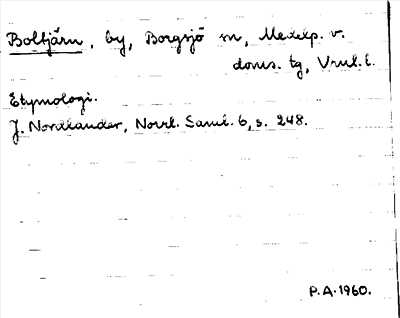 Boltjärn, by, Borgsjö sn, Medelp. v.
doms. tg, Vnrl. l.
Etymologi.
J. Nordlander, Norrl. Saml. 6, s. 248.
P.A. 1960.